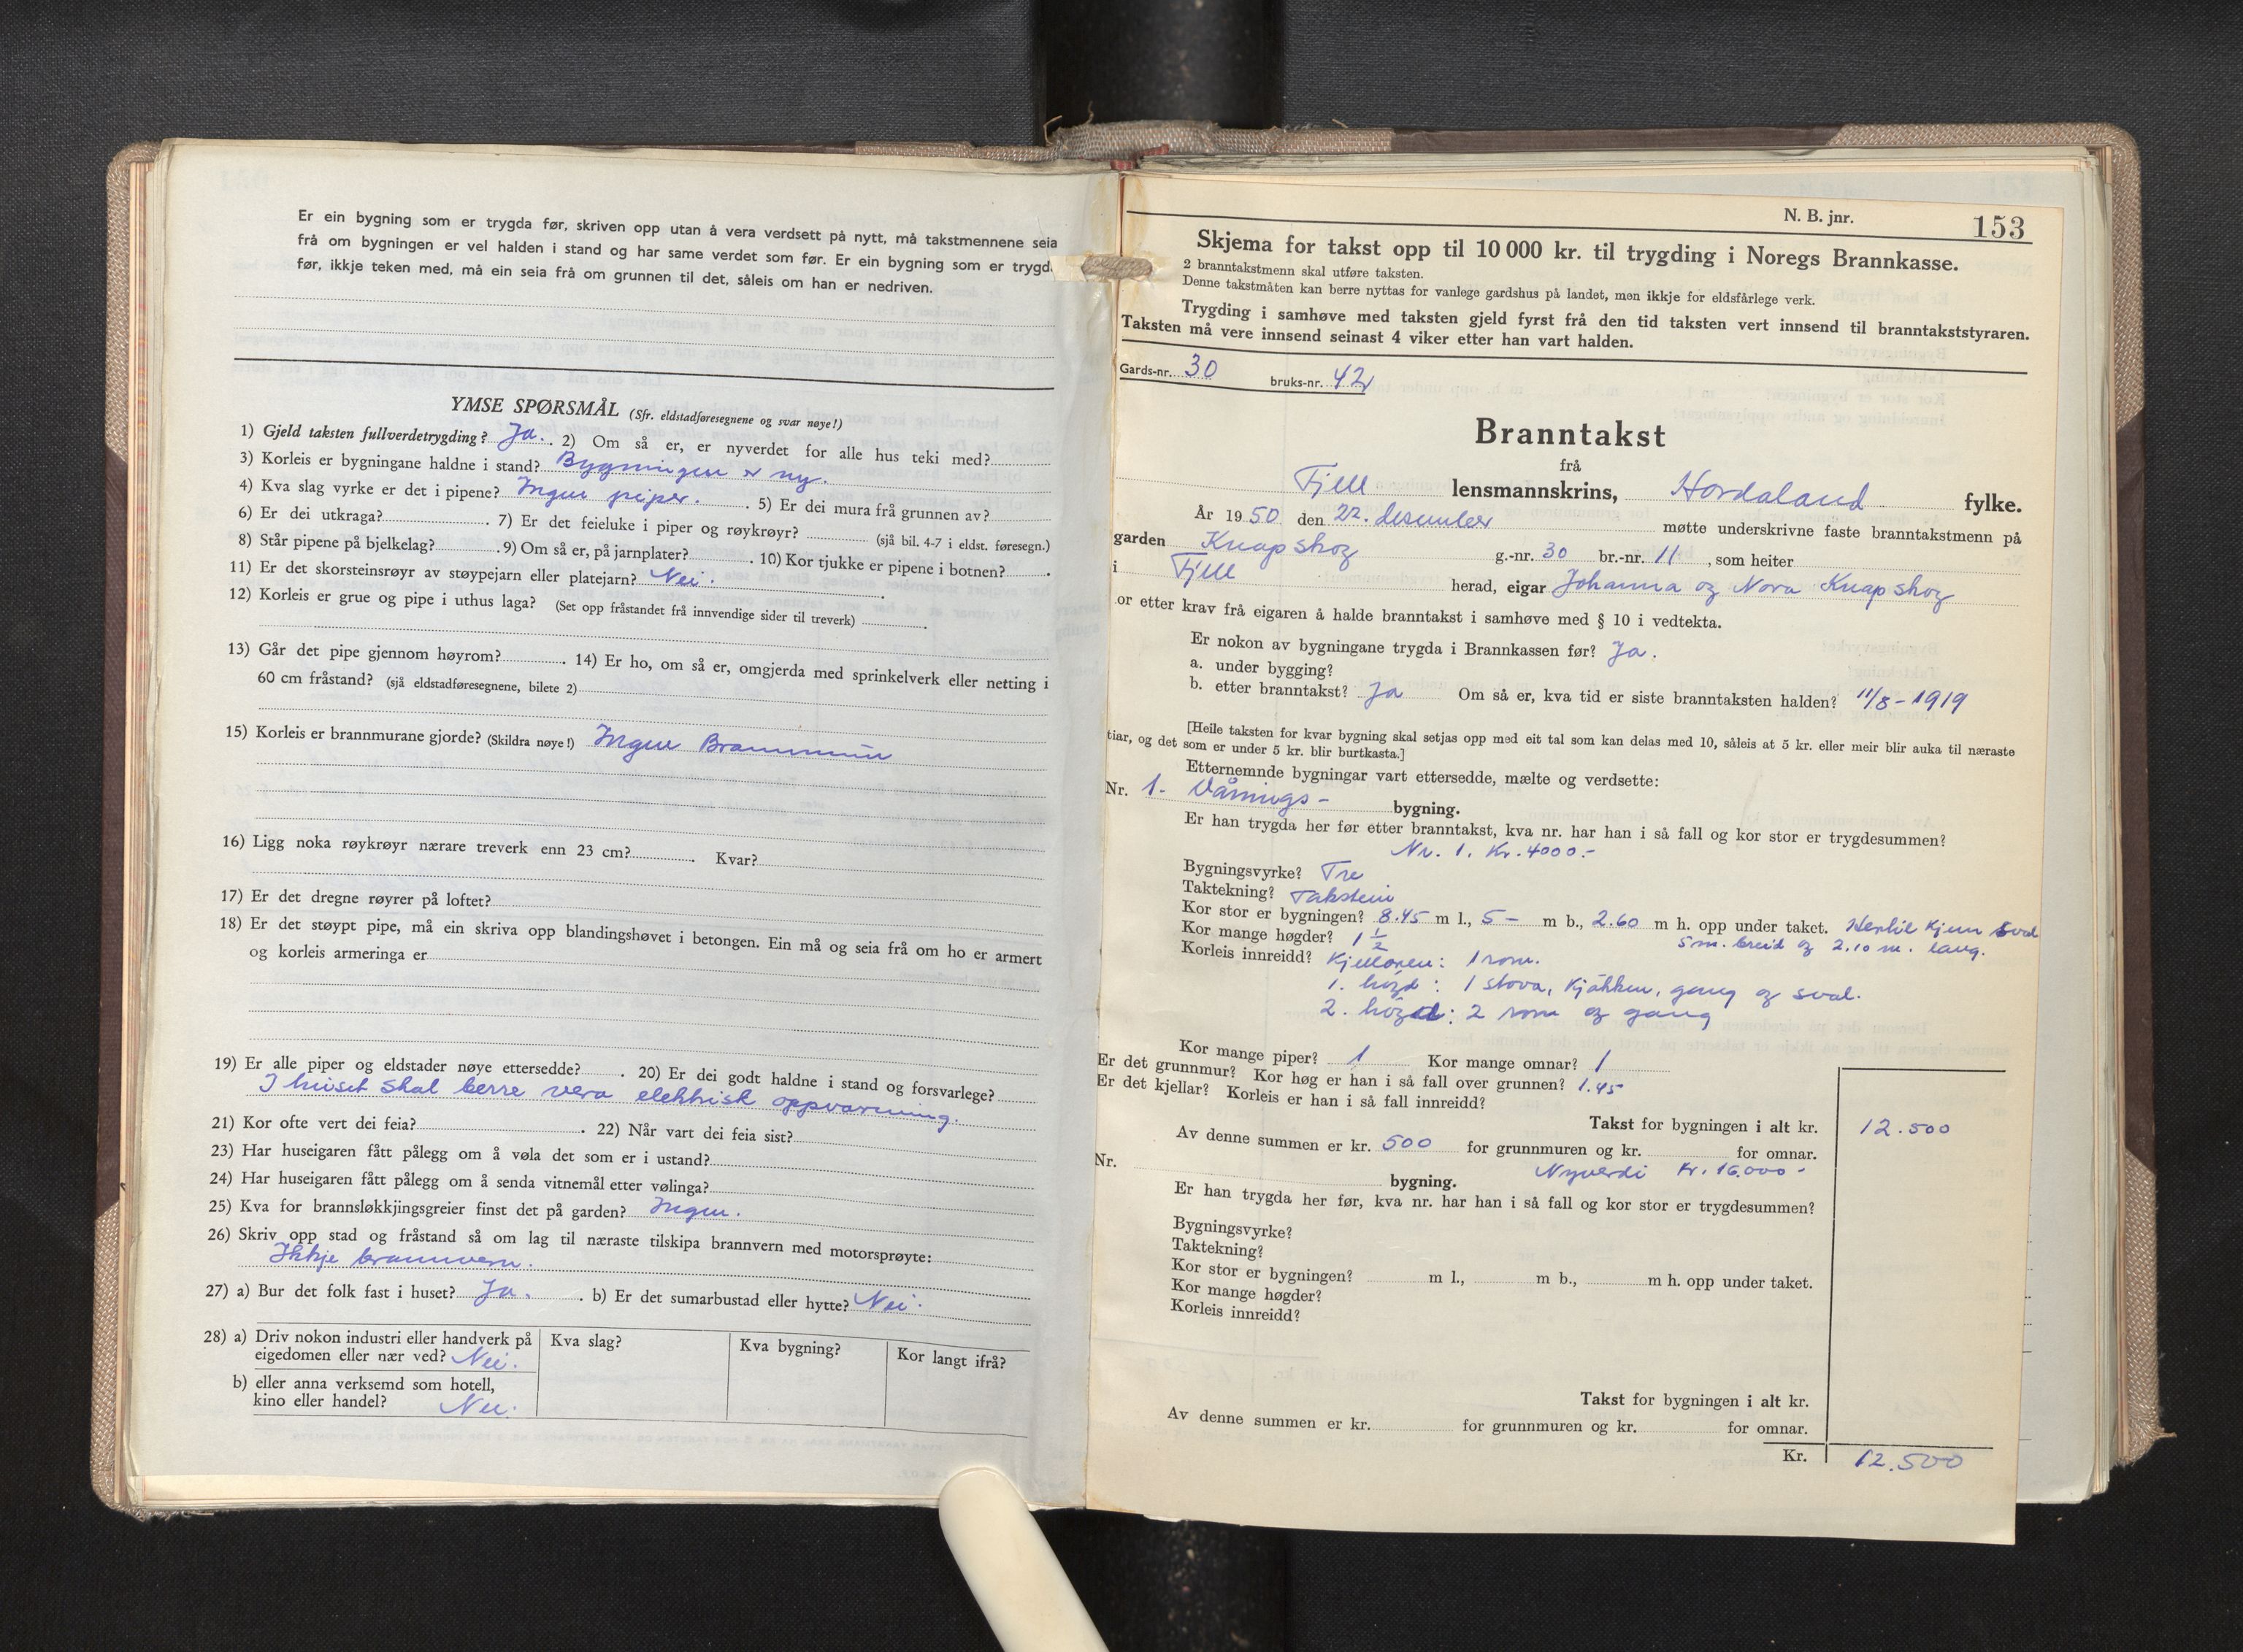 Er ein bygning som er trygda før, skriven opp utan å vera verdsett på nytt, må takstmennene seia
frå om bygningen er vel halden i stand og har same verdet som før. Er ein bygning som er trygd
før, ikkje teken med, må ein seia frå om grunnen til det, såleis om han er nedriven.
YMSE SPØRSMÅL (Sfr. eldstadføresegnene og svar nøye!)
1) Gjeld taksten fullverdetrygding? Ja. 2) Om så er, er nyverdet for alle hus teki med?
3) Korleis er bygningane haldne i stand? Bygningen er ny.
4) Kva slag vyrke er det i pipene? Ingen piper. 5) Er dei mura frå grunnen av?
6) Er dei utkraga? 7) Er det feieluke i piper og røykrøyr? (sjå bil. 4-7 i eldst. føresegn.)
8) Står pipene på bjelkelag? 9) Om så er, på jarnplater? 10) Kor tjukke er pipene i botnen?
11) Er det skorsteinsrøyr av støypejarn eller platejarn? Nei.
12) Korleis er grue og pipe i uthus laga? (Set opp fråstandet frå innvendige sider til treverk)
13) Går det pipe gjennom høyrom? 14) Er ho, om så er, omgjerda med sprinkelverk eller netting i
60 cm fråstand? (sjå eldstadføresegnene, bilete 2)
15) Korleis er brannmurane gjorde? (Skildra nøye!) Ingen Brannmur
16) Ligg noka røykrøyr nærare treverk enn 23 cm? Kvar?
17) Er det dregne røyrer på loftet?
18) Er det støypt pipe, må ein skriva opp blandingshøvet i betongen. Ein må og seia frå om ho er armert
og korleis armeringa er
19) Er alle piper og eldstader nøye ettersedde? 20) Er dei godt haldne i stand og forsvarlege?
I huset skal berre vera elektrisk oppvarming.
21) Kor ofte vert dei feia? 22) Når vart dei feia sist?
23) Har huseigaren fått pålegg om å vøla det som er i ustand?
24) Har huseigaren fått pålegg om å senda vitnemål etter vølinga?
25) Kva for brannsløkkjingsgreier finst det på garden? Ingen.
26) Skriv opp stad og fråstand så om lag til næraste tilskipa brannvern med motorsprøyte:
Ikkje brannvern.
27) a) Bur det folk fast i huset? Ja. b) Er det sumarbustad eller hytte? Nei.
28) a) Driv nokon industri eller handverk på
eigedomen eller nær ved? Nei.
Kva slag?
Kva bygning?
Kor langt ifrå?
b) eller anna verksemd som hotell,
kino eller handel? Nei.
N. B. jnr. 153
Skjema for takst opp til 10 000 kr. til trygding i Noregs Brannkasse.
2 branntakstmenn skal utføre taksten.
Denne takstmåten kan berre nyttas for vanlege gardshus på landet, men ikkje for eldsfårlege verk.
Trygding i samhøve med taksten gjeld fyrst frå den tid taksten vert innsend til branntakststyraren.
Taksten må vere innsend seinast 4 viker etter han vart halden.
Gards-nr. 30 bruks-nr. 42
Branntakst
frå
Fjell lensmannskrins, Hordaland fylke.
År 1950 den 22. desember møtte underskrivne faste branntakstmenn på
garden Knapskog g.-nr. 30 br.-nr. 11, som heiter
i Fjell herad, eigar Johanna og Nora Knapskog
or etter krav frå eigaren å halde branntakst i samhøve med § 10 i vedtekta.
Er nokon av bygningane trygda i Brannkassen før? Ja.
a. under bygging?
b. etter branntakst? Ja Om så er, kva tid er siste branntaksten halden? 11/8-1919
[Heile taksten for kvar bygning skal setjas opp med eit tal som kan delas med 10, såleis at 5 kr. eller meir blir auka til næraste
tiar, og det som er under 5 kr. blir burtkasta.]
Etternemnde bygningar vart ettersedde, mælte og verdsette:
Nr. 1. Vånings- bygning.
Er han trygda her før etter branntakst, kva nr. har han i så fall og kor stor er trygdesummen?
Nr. 1. Kr. 4000.-
Bygningsvyrke? Tre
Taktekning? Takstein
Kor stor er bygningen? 8.45 m l., 5- m b., 2.60 m h. opp under taket.
5 m. breid og 2.10 m. lang.
Kor mange høgder? 1 1/2
Korleis innreidd? Kjellaren: 1 rom.
1. høgd: 1 stova, Kjökken, gang og sval.
2. høgd: 2 rom og gang
Kor mange piper? 1 Kor mange omnar? 1
Er det grunnmur? Kor høg er han i så fall over grunnen? 1.45
Er det kjellar? Korleis er han i så fall innreidd?
Takst for bygningen i alt kr. 12.500
Av denne summen er kr. 500 for grunnmuren og kr. for omnar.
Nyverdi Kr. 16.000-
Nr. bygning.
Er han trygda her før, kva nr. har han i så fall og kor stor er trygdesummen?
Bygningsvyrke?
Taktekning?
Kor stor er bygningen? m l., m b., m h. opp under taket.
Kor mange høgder?
Korleis innreidd?
Takst for bygningen i alt kr.
Av denne summen er kr. for grunnmuren og kr. for omnar.
Kr. 12.500